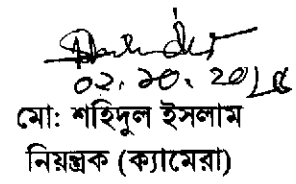 02.10.2018
মো: শহিদুল ইসলাম
নিয়ন্ত্রক (ক্যামেরা)